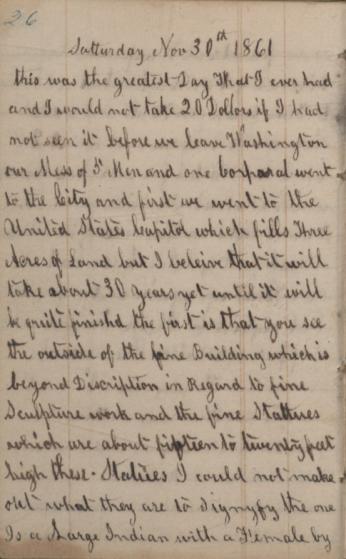 26
Satturday Nov 30th 1861
this was the greatest Day That I ever had
and I would not take 20 Dollors if I had
not seen it before we leave Washington
our Mess of 5 Men and one Corporal went
to the City and first we went to the
United States Capitol which fills Three
Acres of Land but I beleive that it will
take about 30 years yet until it will
be quite finishd the first is that you see
the outside of the fine Building which is
beyond Discription in Regard to fine
Sculpture work and the fine Stattues
which are about fifteen to twenty feet
high these Statues I could not make
out what they are to Signyfy the one
Is a Large Indian with a Female by